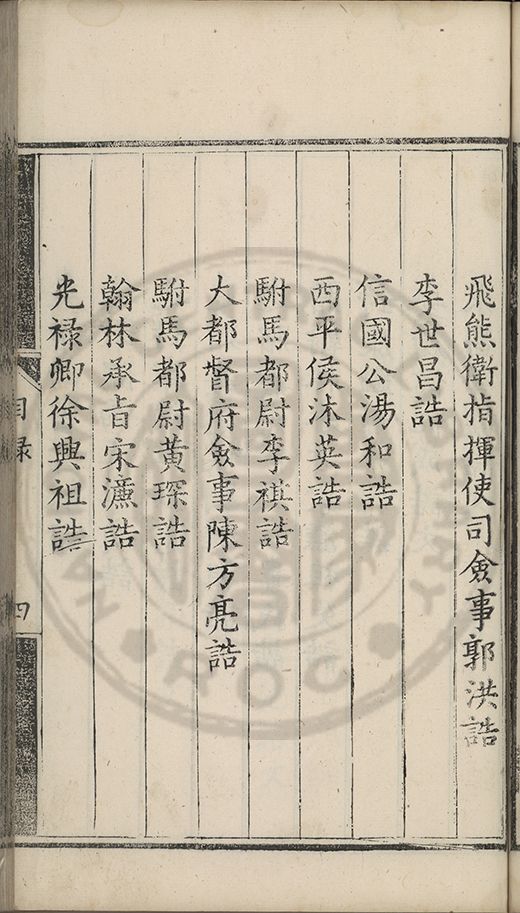 飛熊衛指揮使司僉事郭洪誥
李世昌誥
信國公湯和誥
西平侯沐英誥
駙馬都尉李祺誥
大都督府僉事陳方亮誥
駙馬都尉黃琛誥
翰林承旨宋濂誥
光祿卿徐興祖誥
目錄
四